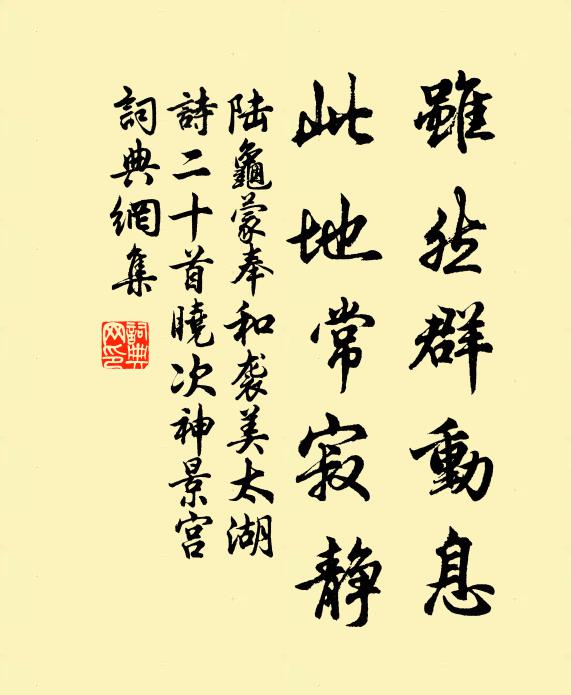 雖然群動息
此地常寂靜
陆龜蒙奉和袭美太湖
詩二十首曉次神景宫
詞典網集
詞典
网印